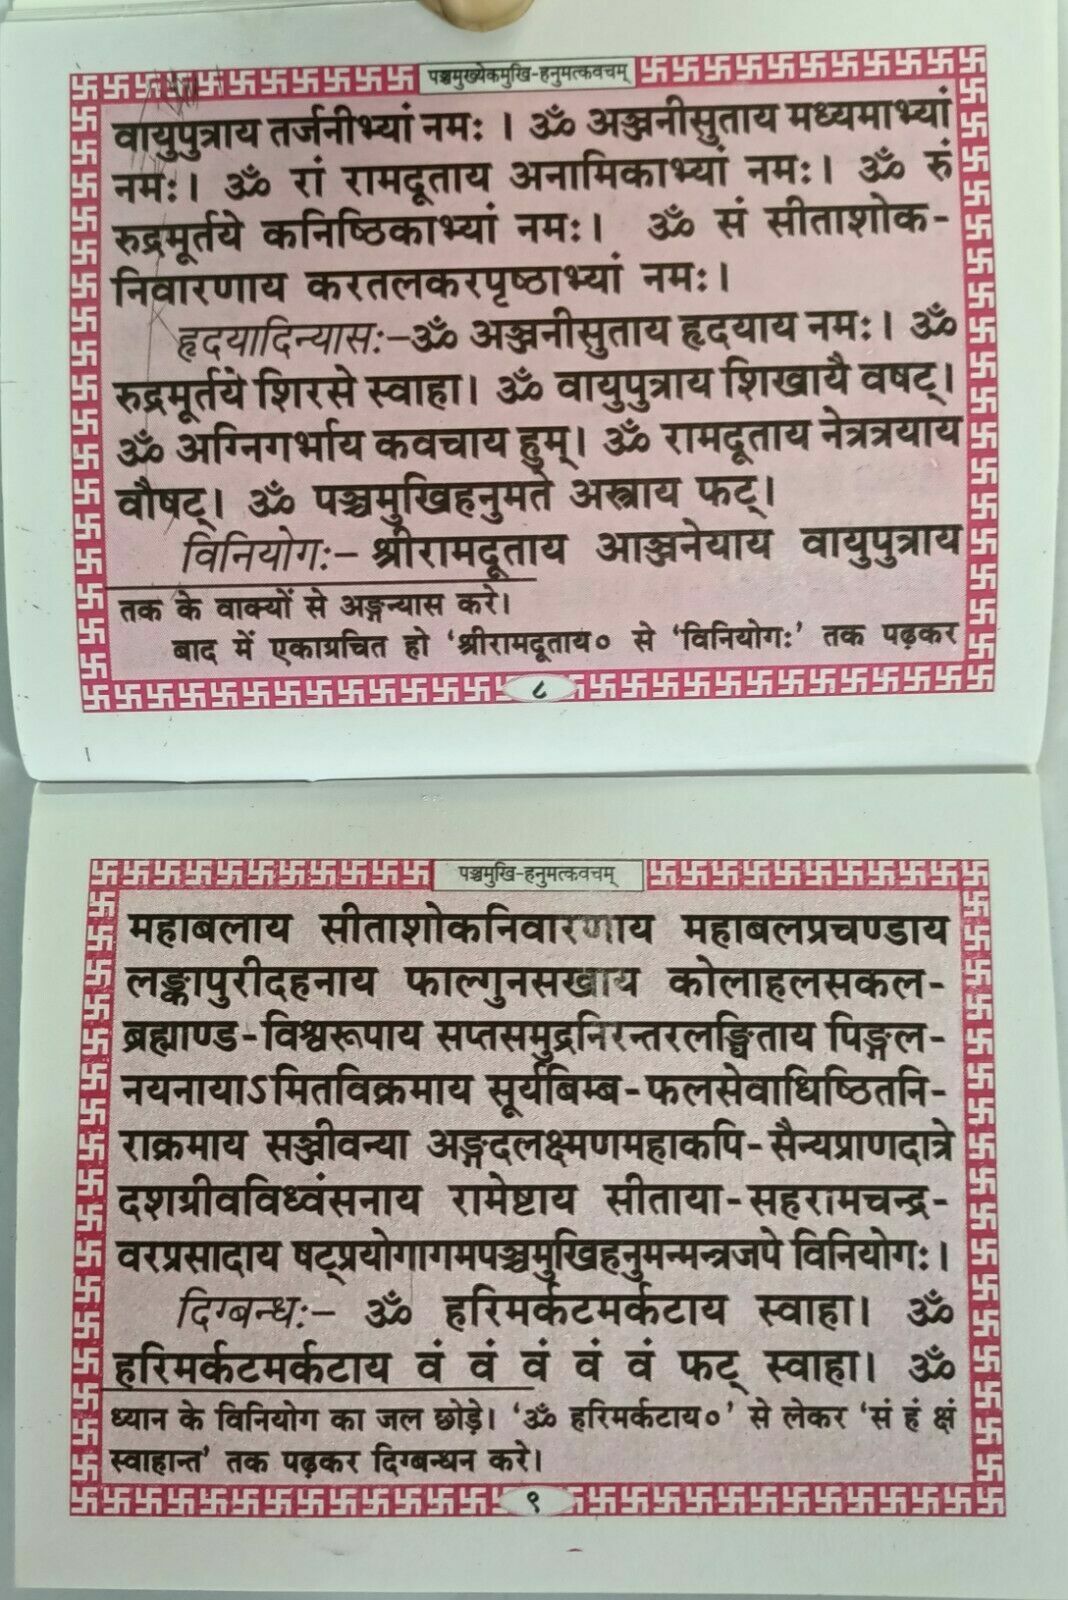 पञ्चमुख्येकमुखि-हनुमत्कवचम्
वायुपुत्राय तर्जनीभ्यां नमः । ॐ अञ्जनीसुताय मध्यमाभ्यां
नमः। ॐ रां रामदूताय अनामिकाभ्यां नमः। ॐ रुं
रुद्रमूर्तये कनिष्ठिकाभ्यां नमः। ॐ सं सीताशोक-
निवारणाय करतलकरपृष्ठाभ्यां नमः।
हृदयादिन्यासः-ॐ अञ्जनीसुताय हृदयाय नमः। ॐ
रुद्रमूर्तये शिरसे स्वाहा। ॐ वायुपुत्राय शिखायै वषट्।
ॐ अग्निगर्भाय कवचाय हुम्। ॐ रामदूताय नेत्रत्रयाय
वौषट्। ॐ पञ्चमुखिहनुमते अस्त्राय फट्।
विनियोगः- श्रीरामदूताय आञ्जनेयाय वायुपुत्राय
तक के वाक्यों से अङ्गन्यास करे।
बाद में एकाग्रचित हो 'श्रीरामदूताय० से 'विनियोगः' तक पढ़कर
८
पञ्चमुखि-हनुमत्कवचम्
महाबलाय सीताशोकनिवारणाय महाबलप्रचण्डाय
लङ्कापुरीदहनाय फाल्गुनसखाय कोलाहलसकल-
ब्रह्माण्ड-विश्वरूपाय सप्तसमुद्रनिरन्तरलङ्घिताय पिङ्गल-
नयनायाऽमितविक्रमाय सूर्यबिम्ब-फलसेवाधिष्ठितनि-
राक्रमाय सञ्जीवन्या अङ्गदलक्ष्मणमहाकपि-सैन्यप्राणदात्रे
दशग्रीवविध्वंसनाय रामेष्टाय सीताया-सहरामचन्द्र-
वरप्रसादाय षट्प्रयोगागमपञ्चमुखिहनुमन्मन्त्रजपे विनियोगः।
दिग्बन्धः- ॐ हरिमर्कटमर्कटाय स्वाहा। ॐ
हरिमर्कटमर्कटाय वं वं वं वं वं फट् स्वाहा। ॐ
ध्यान के विनियोग का जल छोड़े। 'ॐ हरिमर्कटाय०' से लेकर 'सं हं क्षं
स्वाहान्त' तक पढ़कर दिग्बन्धन करे।
९